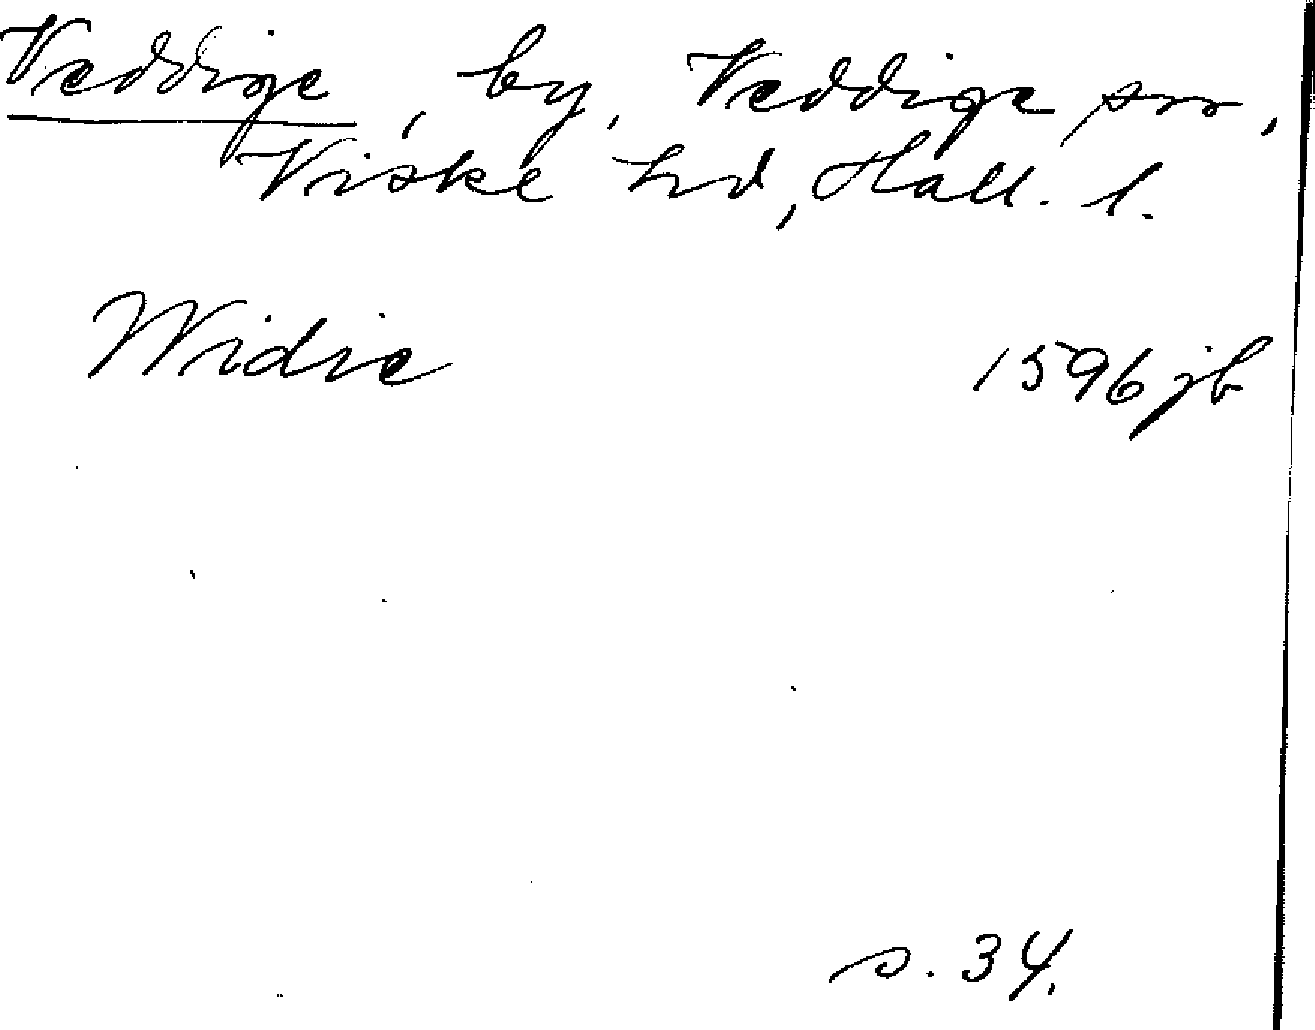 Veddige, by, Veddige sn,
Viske hd, Hall. l.
Widie 1596 jb
s. 34.